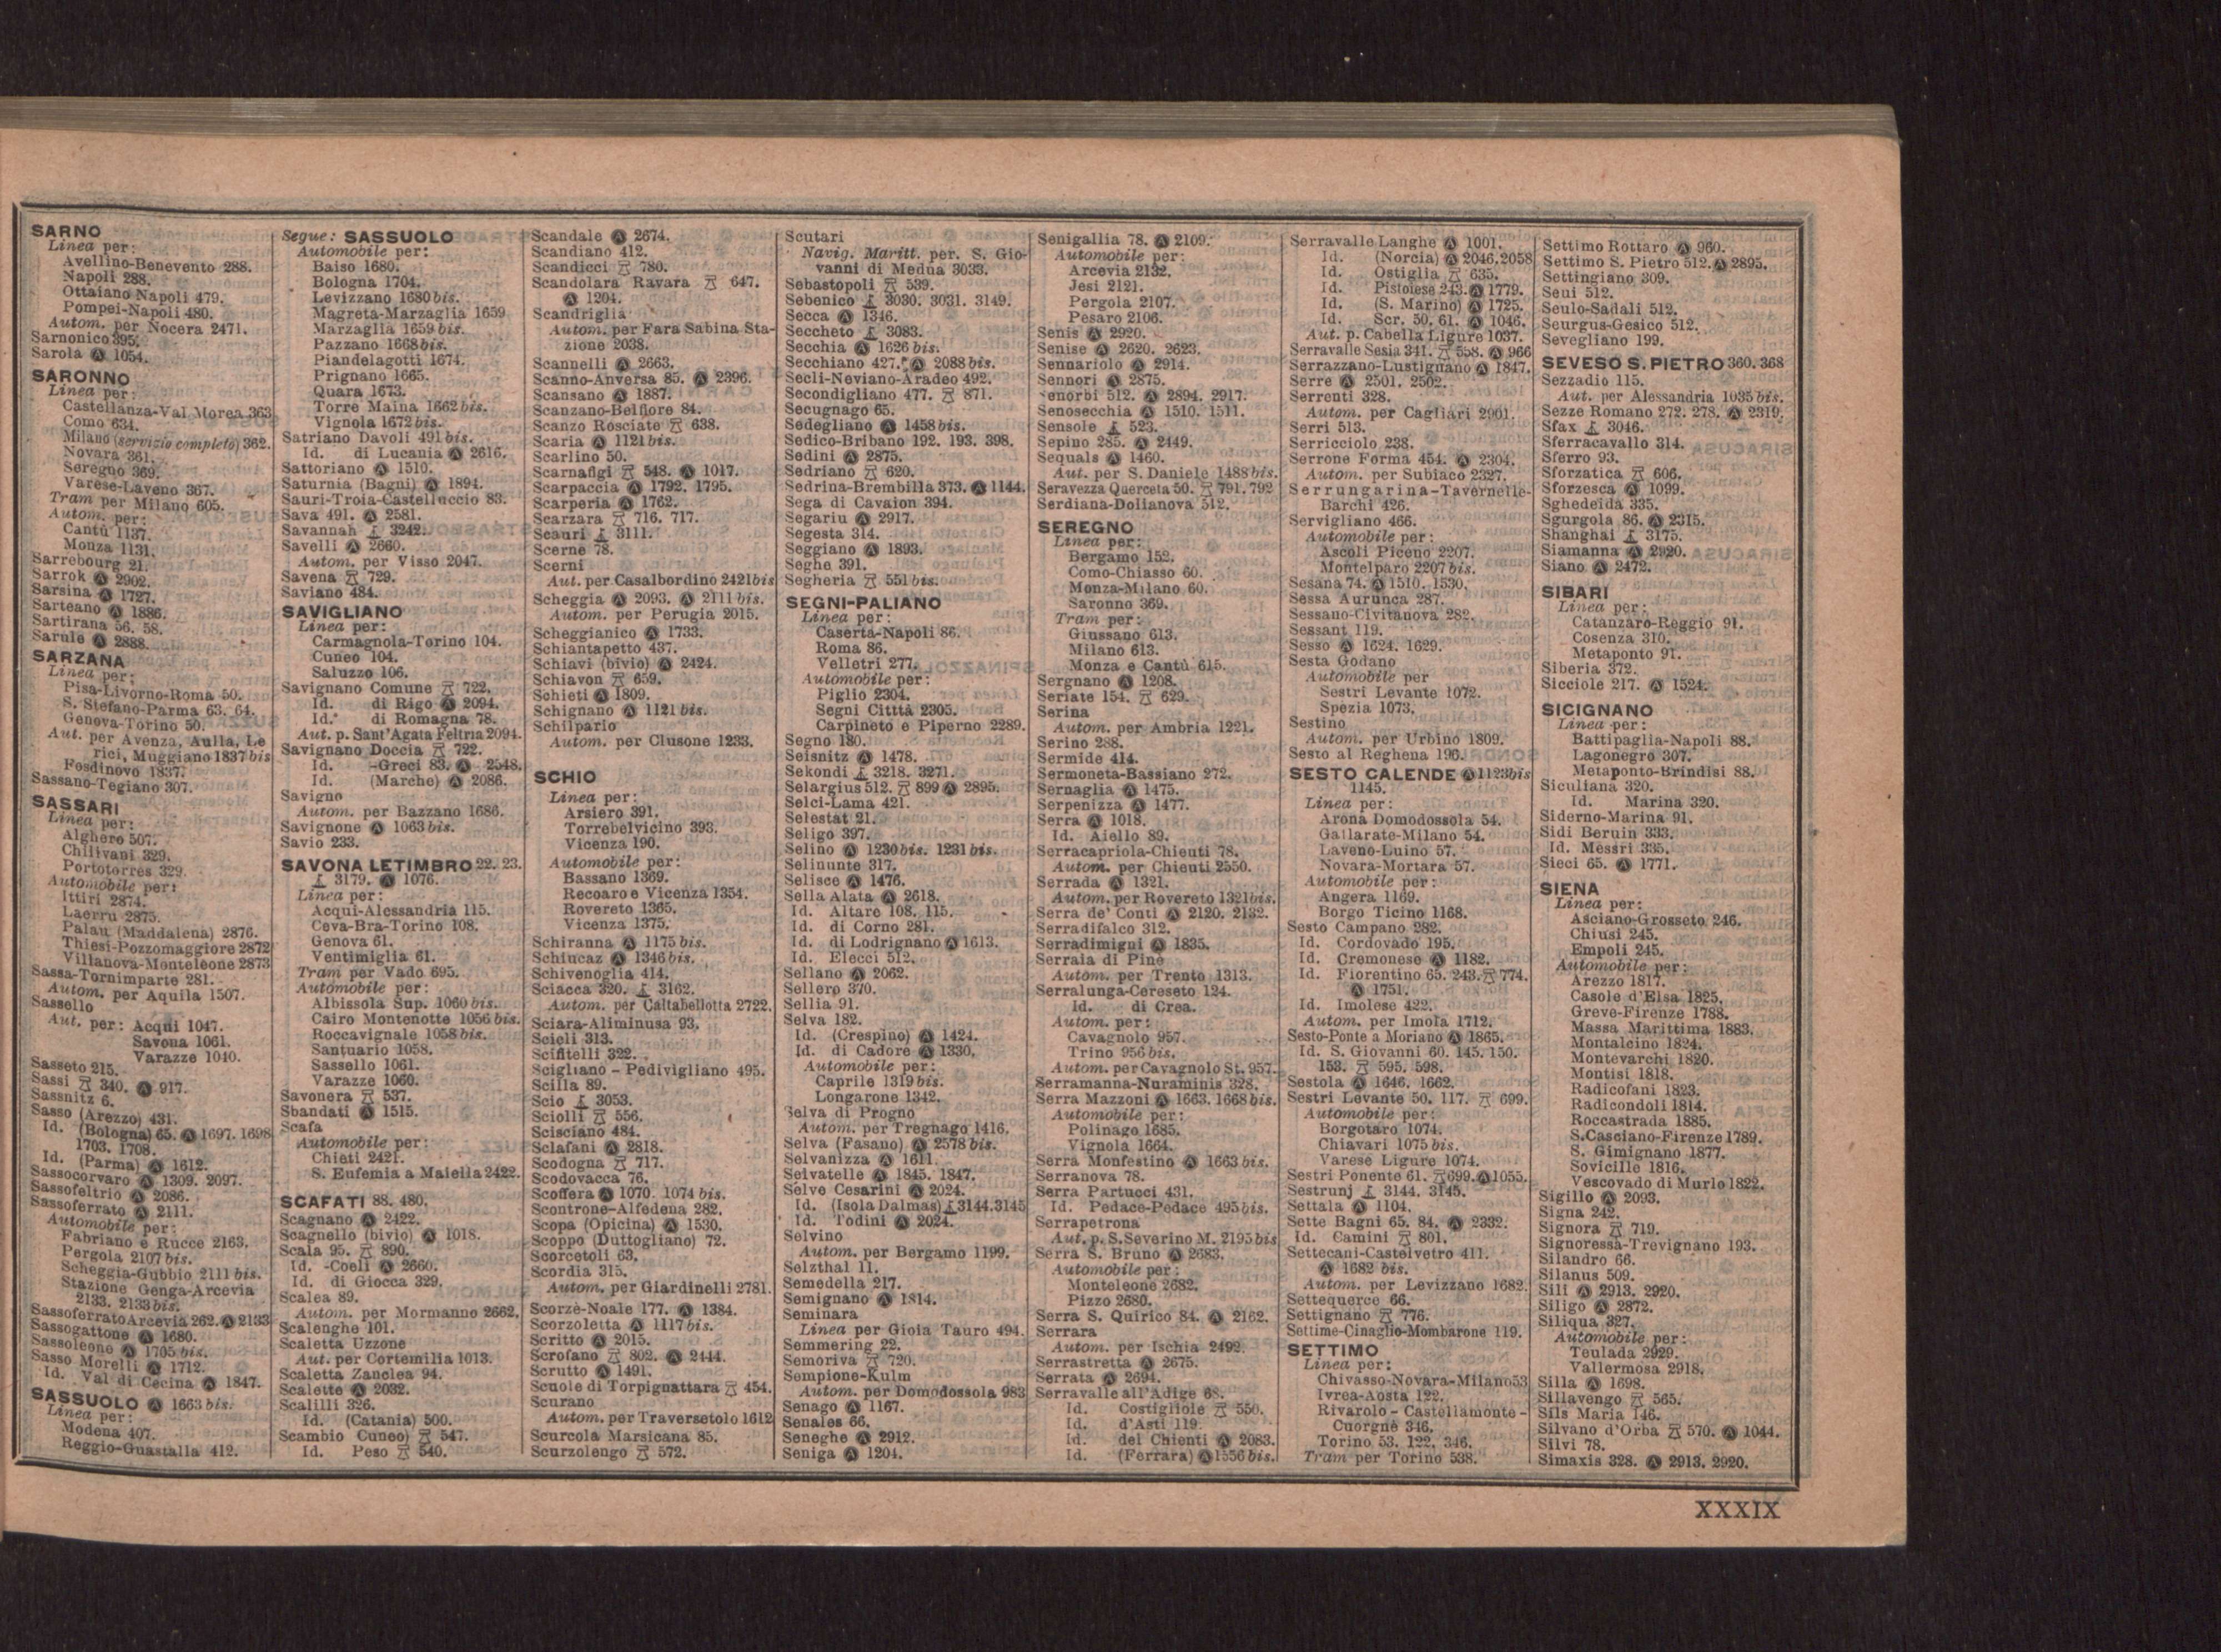 SARNO
Linea per:
Avellino-Benevento 288.
Napoli 288.
Ottaiano Napoli 479.
Pompei-Napoli 480.
Autom. per Nocera 2471.
Sarnonico 395.
Sarola Ⓐ 1054.
SARONNO
Linea per:
Castellanza-Val Morea 363
Como 634.
Milano (servizio completo) 362.
Novara 361.
Seregno 369.
Varese-Laveno 367.
Tram per Milano 605.
Autom. per:
Cantù 1137.
Monza 1131.
Sarrebourg 21.
Sarrok Ⓐ 2902.
Sarsina Ⓐ 1727.
Sarteano Ⓐ 1886.
Sartirana 56. 58.
Sarule Ⓐ 2888.
SARZANA
Linea per:
Pisa-Livorno-Roma 50.
S. Stefano-Parma 63. 64.
Genova-Torino 50.
Aut. per Avenza, Aulla, Le
rici, Muggiano 1837 bis
Fosdinovo 1837.
Sassano-Tegiano 307.
SASSARI
Linea per:
Alghero 507.
Chilivani 329.
Portotorres 329.
Automobile per:
Ittiri 2874.
Laerru 2875.
Palau (Maddalena) 2876.
Thiesi-Pozzomaggiore 2872
Villanova-Monteleone 2873
Sassa-Tornimparte 281.
Autom. per Aquila 1507.
Sassello
Aut. per: Acqui 1047.
Savona 1061.
Varazze 1040.
Sasseto 215.
Sassi 340. Ⓐ 917.
Sassnitz 6.
Sasso (Arezzo) 431.
Id. (Bologna) 65. Ⓐ 1697. 1698
1703. 1708.
Id. (Parma) Ⓐ 1612.
Sassocorvaro Ⓐ 1309. 2097.
Sassofeltrio Ⓐ 2086.
Sassoferrato Ⓐ 2111.
Automobile per:
Fabriano e Rucce 2163.
Pergola 2107 bis.
Scheggia-Gubbio 2111 bis.
Stazione Genga-Arcevia
2133. 2133 bis.
Sassoferrato Arcevia 262. Ⓐ 2133
Sassogattone Ⓐ 1680.
Sassoleone Ⓐ 1705 bis.
Sasso Morelli Ⓐ 1712.
Id. Val di Cecina Ⓐ 1847.
SASSUOLO Ⓐ 1663 bis.
Linea per:
Modena 407.
Reggio-Guastalla 412.
Segue: SASSUOLO
Automobile per:
Baiso 1680.
Bologna 1704.
Levizzano 1680 bis.
Magreta-Marzaglia 1659
Marzaglia 1659 bis.
Pazzano 1668 bis.
Piandelagotti 1674.
Prignano 1665.
Quara 1673.
Torre Maina 1662 bis.
Vignola 1672 bis.
Satriano Davoli 491 bis.
Id. di Lucania Ⓐ 2616.
Sattoriano Ⓐ 1510.
Saturnia (Bagni) Ⓐ 1894.
Sauri-Troia-Castelluccio 83.
Sava 491. Ⓐ 2581.
Savannah 3242.
Savelli Ⓐ 2660.
Autom. per Visso 2047.
Savena 729.
Saviano 484.
SAVIGLIANO
Linea per:
Carmagnola-Torino 104.
Cuneo 104.
Saluzzo 106.
Savignano Comune 722.
Id. di Rigo Ⓐ 2094.
Id. di Romagna 78.
Aut. p. Sant'Agata Feltria 2094.
Savignano Doccia 722.
Id. -Greci 83. Ⓐ 2548.
Id. (Marche) Ⓐ 2086.
Savigno
Autom. per Bazzano 1686.
Savignone Ⓐ 1063 bis.
Savio 233.
SAVONA LETIMBRO 22. 23.
3179. Ⓐ 1076.
Linea per:
Acqui-Alessandria 115.
Ceva-Bra-Torino 108.
Genova 61.
Ventimiglia 61.
Tram per Vado 695.
Automobile per:
Albissola Sup. 1060 bis.
Cairo Montenotte 1056 bis.
Roccavignale 1058 bis.
Santuario 1058.
Sassello 1061.
Varazze 1060.
Savonera 537.
Sbandati Ⓐ 1515.
Scafa
Automobile per:
Chieti 2421.
S. Eufemia a Maiella 2422.
SCAFATI 88. 480.
Scagnano Ⓐ 2422.
Scagnello (bivio) Ⓐ 1018.
Scala 95. 890.
Id. -Coeli Ⓐ 2660.
Id. di Giocca 329.
Scalea 89.
Autom. per Mormanno 2662.
Scalenghe 101.
Scaletta Uzzone
Aut. per Cortemilia 1013.
Scaletta Zanclea 94.
Scalette Ⓐ 2032.
Scalilli 326.
Id. (Catania) 500.
Scambio Cuneo) 547.
Id. Peso 540.
Scandale Ⓐ 2674.
Scandiano 412.
Scandicci 780.
Scandolara Ravara 647.
Ⓐ 1204.
Scandriglia
Autom. per Fara Sabina Sta-
zione 2038.
Scannelli Ⓐ 2663.
Scanno-Anversa 85. Ⓐ 2396.
Scansano Ⓐ 1887.
Scanzano-Belfiore 84.
Scanzo Rosciate 638.
Scaria Ⓐ 1121 bis.
Scarlino 50.
Scarnafigi 548. Ⓐ 1017.
Scarpaccia Ⓐ 1792. 1795.
Scarperia Ⓐ 1762.
Scarzara 716. 717.
Scauri 3111.
Scerne 78.
Scerni
Aut. per Casalbordino 2421 bis
Scheggia Ⓐ 2093. Ⓐ 2111 bis.
Autom. per Perugia 2015.
Scheggianico Ⓐ 1733.
Schiantapetto 437.
Schiavi (bivio) Ⓐ 2424.
Schiavon 659.
Schieti Ⓐ 1809.
Schignano Ⓐ 1121 bis.
Schilpario
Autom. per Clusone 1233.
SCHIO
Linea per:
Arsiero 391.
Torrebelvicino 393.
Vicenza 190.
Automobile per:
Bassano 1369.
Recoaro e Vicenza 1354.
Rovereto 1365.
Vicenza 1375.
Schiranna Ⓐ 1175 bis.
Schiucaz Ⓐ 1346 bis.
Schivenoglia 414.
Sciacca 320. 3162.
Autom. per Caltabellotta 2722.
Sciara-Aliminusa 93.
Scicli 313.
Scifitelli 322.
Scigliano - Pedivigliano 495.
Scilla 89.
Scio 3053.
Sciolli 556.
Scisciano 484.
Sclafani Ⓐ 2818.
Scodogna 717.
Scodovacca 76.
Scoffera Ⓐ 1070. 1074 bis.
Scontrone-Alfedena 282.
Scopa (Opicina) Ⓐ 1530.
Scoppo (Duttogliano) 72.
Scorcetoli 63.
Scordia 315.
Autom. per Giardinelli 2781.
Scorzè-Noale 177. Ⓐ 1384.
Scorzoletta Ⓐ 1117 bis.
Scritto Ⓐ 2015.
Scrofano 802. Ⓐ 2444.
Scrutto Ⓐ 1491.
Scuole di Torpignattara 454.
Scurano
Autom. per Traversetolo 1612
Scurcola Marsicana 85.
Scurzolengo 572.
Scutari
Navig. Maritt. per. S. Gio-
vanni di Medua 3033.
Sebastopoli 539.
Sebenico 3030. 3031. 3149.
Secca Ⓐ 1346.
Seccheto 3083.
Secchia Ⓐ 1626 bis.
Secchiano 427. Ⓐ 2088 bis.
Secli-Neviano-Aradeo 492.
Secondigliano 477. 871.
Secugnago 65.
Sedegliano Ⓐ 1458 bis.
Sedico-Bribano 192. 193. 398.
Sedini Ⓐ 2875.
Sedriano 620.
Sedrina-Brembilla 373. Ⓐ 1144.
Sega di Cavaion 394.
Segariu Ⓐ 2917.
Segesta 314.
Seggiano Ⓐ 1893.
Seghe 391.
Segheria 551 bis.
SEGNI-PALIANO
Linea per:
Caserta-Napoli 86.
Roma 86.
Velletri 277.
Automobile per:
Piglio 2304.
Segni Citttà 2305.
Carpineto e Piperno 2289.
Segno 180.
Seisnitz Ⓐ 1478.
Sekondi 3218. 3271.
Selargius 512. 899 Ⓐ 2895.
Selci-Lama 421.
Selestat 21.
Seligo 397.
Selino Ⓐ 1230 bis. 1231 bis.
Selinunte 317.
Selisce Ⓐ 1476.
Sella Alata Ⓐ 2618.
Id. Altare 108. 115.
Id. di Corno 281.
Id. di Lodrignano Ⓐ 1613.
Id. Elecci 512.
Sellano Ⓐ 2062.
Sellero 370.
Sellia 91.
Selva 182.
Id. (Crespino) Ⓐ 1424.
Id. di Cadore Ⓐ 1330.
Automobile per:
Caprile 1319 bis.
Longarone 1342.
Selva di Progno
Autom. per Tregnago 1416.
Selva (Fasano) Ⓐ 2578 bis.
Selvanizza Ⓐ 1611.
Selvatelle Ⓐ 1845. 1847.
Selve Cesarini Ⓐ 2024.
Id. (Isola Dalmas) 3144.3145
Id. Todini Ⓐ 2024.
Selvino
Autom. per Bergamo 1199.
Selzthal 11.
Semedella 217.
Semignano Ⓐ 1814.
Seminara
Linea per Gioia Tauro 494.
Semmering 22.
Semoriva 720.
Sempione-Kulm
Autom. per Domodossola 983
Senago Ⓐ 1167.
Senales 66.
Seneghe Ⓐ 2912.
Seniga Ⓐ 1204.
Senigallia 78. Ⓐ 2109.
Automobile per:
Arcevia 2132.
Jesi 2121.
Pergola 2107.
Pesaro 2106.
Senis Ⓐ 2920.
Senise Ⓐ 2620. 2623.
Sennariolo Ⓐ 2914.
Sennori Ⓐ 2875.
enorbi 512. Ⓐ 2894. 2917.
Senosecchia Ⓐ 1510. 1511.
Sensole 523.
Sepino 285. Ⓐ 2449.
Sequals Ⓐ 1460.
Aut. per S. Daniele 1488 bis.
Seravezza Querceta 50. 791. 792
Serdiana-Dolianova 512.
SEREGNO
Linea per:
Bergamo 152.
Como-Chiasso 60.
Monza-Milano 60.
Saronno 369.
Tram per:
Giussano 613.
Milano 613.
Monza e Cantù 615.
Sergnano Ⓐ 1208.
Seriate 154. 629.
Serina
Autom. per Ambria 1221.
Serino 288.
Sermide 414.
Sermoneta-Bassiano 272.
Sernaglia Ⓐ 1475.
Serpenizza Ⓐ 1477.
Serra Ⓐ 1018.
Id. Aiello 89.
Serracapriola-Chieuti 78.
Autom. per Chieuti 2550.
Serrada Ⓐ 1321.
Autom. per Rovereto 1321 bis.
Serra de' Conti Ⓐ 2120. 2132.
Serradifalco 312.
Serradimigni Ⓐ 1835.
Serraia di Pinè
Autom. per Trento 1313.
Serralunga-Cereseto 124.
Id. di Crea.
Autom. per:
Cavagnolo 957.
Trino 956 bis.
Autom. per Cavagnolo St. 957.
Serramanna-Nuraminis 328.
Serra Mazzoni Ⓐ 1663. 1668 bis.
Automobile per:
Polinago 1685.
Vignola 1664.
Serra Monfestino Ⓐ 1663 bis.
Serranova 78.
Serra Partucci 431.
Id. Pedace-Pedace 495 bis.
Serrapetrona
Aut. p. S. Severino M. 2195 bis
Serra S. Bruno Ⓐ 2683.
Automobile per:
Monteleone 2682.
Pizzo 2680.
Serra S. Quirico 84. Ⓐ 2162.
Serrara
Autom. per Ischia 2492.
Serrastretta Ⓐ 2675.
Serrata Ⓐ 2694.
Serravalle all'Adige 68.
Id. Costigliole 550.
Id. d'Asti 119.
Id. del Chienti Ⓐ 2083.
Id. (Ferrara) Ⓐ 1556 bis.
Serravalle Langhe Ⓐ 1001.
Id. (Norcia) Ⓐ 2046.2058
Id. Ostiglia 635.
Id. Pistoiese 243. Ⓐ 1779.
Id. (S. Marino) Ⓐ 1725.
Id. Scr. 50. 61. Ⓐ 1046.
Aut. p. Cabella Ligure 1037.
Serravalle Sesia 341. 558. Ⓐ 966
Serrazzano-Lustignano Ⓐ 1847.
Serre Ⓐ 2501. 2502.
Serrenti 328.
Autom. per Cagliari 2901.
Serri 513.
Serricciolo 238.
Serrone Forma 454. Ⓐ 2304.
Autom. per Subiaco 2327.
Serrungarina-Tavernelle-
Barchi 426.
Servigliano 466.
Automobile per:
Ascoli Piceno 2207.
Montelparo 2207 bis.
Sesana 74. Ⓐ 1510. 1530.
Sessa Aurunca 287.
Sessano-Civitanova 282.
Sessant 119.
Sesso Ⓐ 1624. 1629.
Sesta Godano
Automobile per
Sestri Levante 1072.
Spezia 1073.
Sestino
Autom. per Urbino 1809.
Sesto al Reghena 196.
SESTO CALENDE Ⓐ 1123 bis
1145.
Linea per:
Arona Domodossola 54.
Gallarate-Milano 54.
Laveno-Luino 57.
Novara-Mortara 57.
Automobile per:
Angera 1169.
Borgo Ticino 1168.
Sesto Campano 282.
Id. Cordovado 195.
Id. Cremonese Ⓐ 1182.
Id. Fiorentino 65. 243. 774.
Ⓐ 1751.
Id. Imolese 422.
Autom. per Imola 1712.
Sesto-Ponte a Moriano Ⓐ 1865.
Id. S. Giovanni 60. 145. 150.
153. 595. 598.
Sestola Ⓐ 1646. 1662.
Sestri Levante 50. 117. 699.
Automobile per:
Borgotaro 1074.
Chiavari 1075 bis.
Varese Ligure 1074.
Sestri Ponente 61. 699. Ⓐ 1055.
Sestrunj 3144. 3145.
Settala Ⓐ 1104.
Sette Bagni 65. 84. Ⓐ 2332.
Id. Camini 801.
Settecani-Castelvetro 411.
Ⓐ 1682 bis.
Autom. per Levizzano 1682.
Settequerce 66.
Settignano 776.
Settime-Cinaglio-Mombarone 119.
SETTIMO
Linea per:
Chivasso-Novara-Milano 53
Ivrea-Aosta 122.
Rivarolo - Castellamonte -
Cuorgnè 346.
Torino 53. 122. 346.
Tram per Torino 538.
Settimo Rottaro Ⓐ 960.
Settimo S. Pietro 512. Ⓐ 2895.
Settingiano 309.
Seui 512.
Seulo-Sadali 512.
Seurgus-Gesico 512.
Sevegliano 199.
SEVESO S. PIETRO 360. 368
Sezzadio 115.
Aut. per Alessandria 1035 bis.
Sezze Romano 272. 278. Ⓐ 2319.
Sfax 3046.
Sferracavallo 314.
Sferro 93.
Sforzatica 606.
Sforzesca Ⓐ 1099.
Sghedeida 335.
Sgurgola 86. Ⓐ 2315.
Shanghai 3175.
Siamanna Ⓐ 2920.
Siano Ⓐ 2472.
SIBARI
Linea per:
Catanzaro-Reggio 91.
Cosenza 310.
Metaponto 91.
Siberia 372.
Sicciole 217. Ⓐ 1524.
SICIGNANO
Linea per:
Battipaglia-Napoli 88.
Lagonegro 307.
Metaponto-Brindisi 88.
Siculiana 320.
Id. Marina 320.
Siderno-Marina 91.
Sidi Beruin 333.
Id. Messri 335.
Sieci 65. Ⓐ 1771.
SIENA
Linea per:
Asciano-Grosseto 246.
Chiusi 245.
Empoli 245.
Automobile per:
Arezzo 1817.
Casole d'Elsa 1825.
Greve-Firenze 1788.
Massa Marittima 1883.
Montalcino 1824.
Montevarchi 1820.
Montisi 1818.
Radicofani 1823.
Radicondoli 1814.
Roccastrada 1885.
S. Casciano-Firenze 1789.
S. Gimignano 1877.
Sovicille 1816.
Vescovado di Murlo 1822.
Sigillo Ⓐ 2093.
Signa 242.
Signora 719.
Signoressa-Trevignano 193.
Silandro 66.
Silanus 509.
Sili Ⓐ 2913. 2920.
Siligo Ⓐ 2872.
Siliqua 327.
Automobile per:
Teulada 2929.
Vallermosa 2918.
Silla Ⓐ 1698.
Sillavengo 565.
Sils Maria 146.
Silvano d'Orba 570. Ⓐ 1044.
Silvi 78.
Simaxis 328. Ⓐ 2913. 2920.
XXXIX